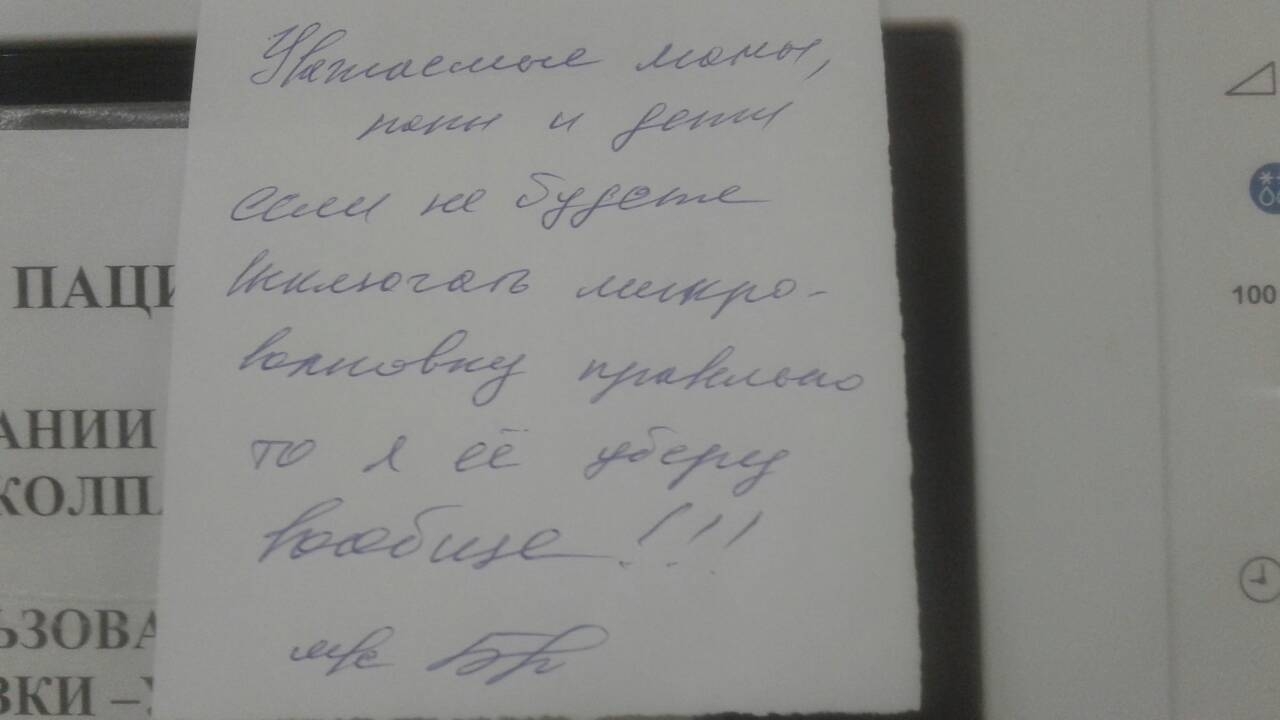 Уважаемые мамы,
папы и дети
если не будете
включать микро-
волновку правильно
то я её уберу
вообще!!!
ПАЦИ
АНИИ
КОЛП
ЬЗОВА
ЗКИ –
100